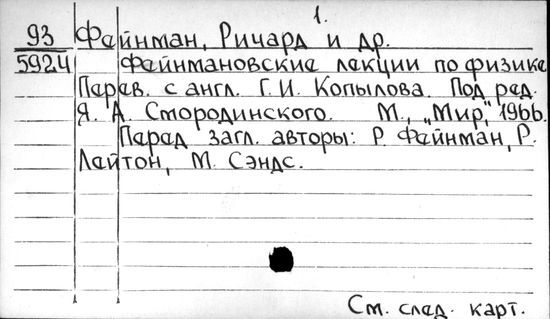 1.
93 Файнман, Ричард и др.
5924 Файнмановские лекции по физике
Перев. с англ. Г. И. Копылова. Под ред.
Я. А. Смородинского. М., „Мир", 1966.
Перед загл. авторы: Р. Файнман, Р.
Лайтон, М. Сэндс.
См. след. карт.